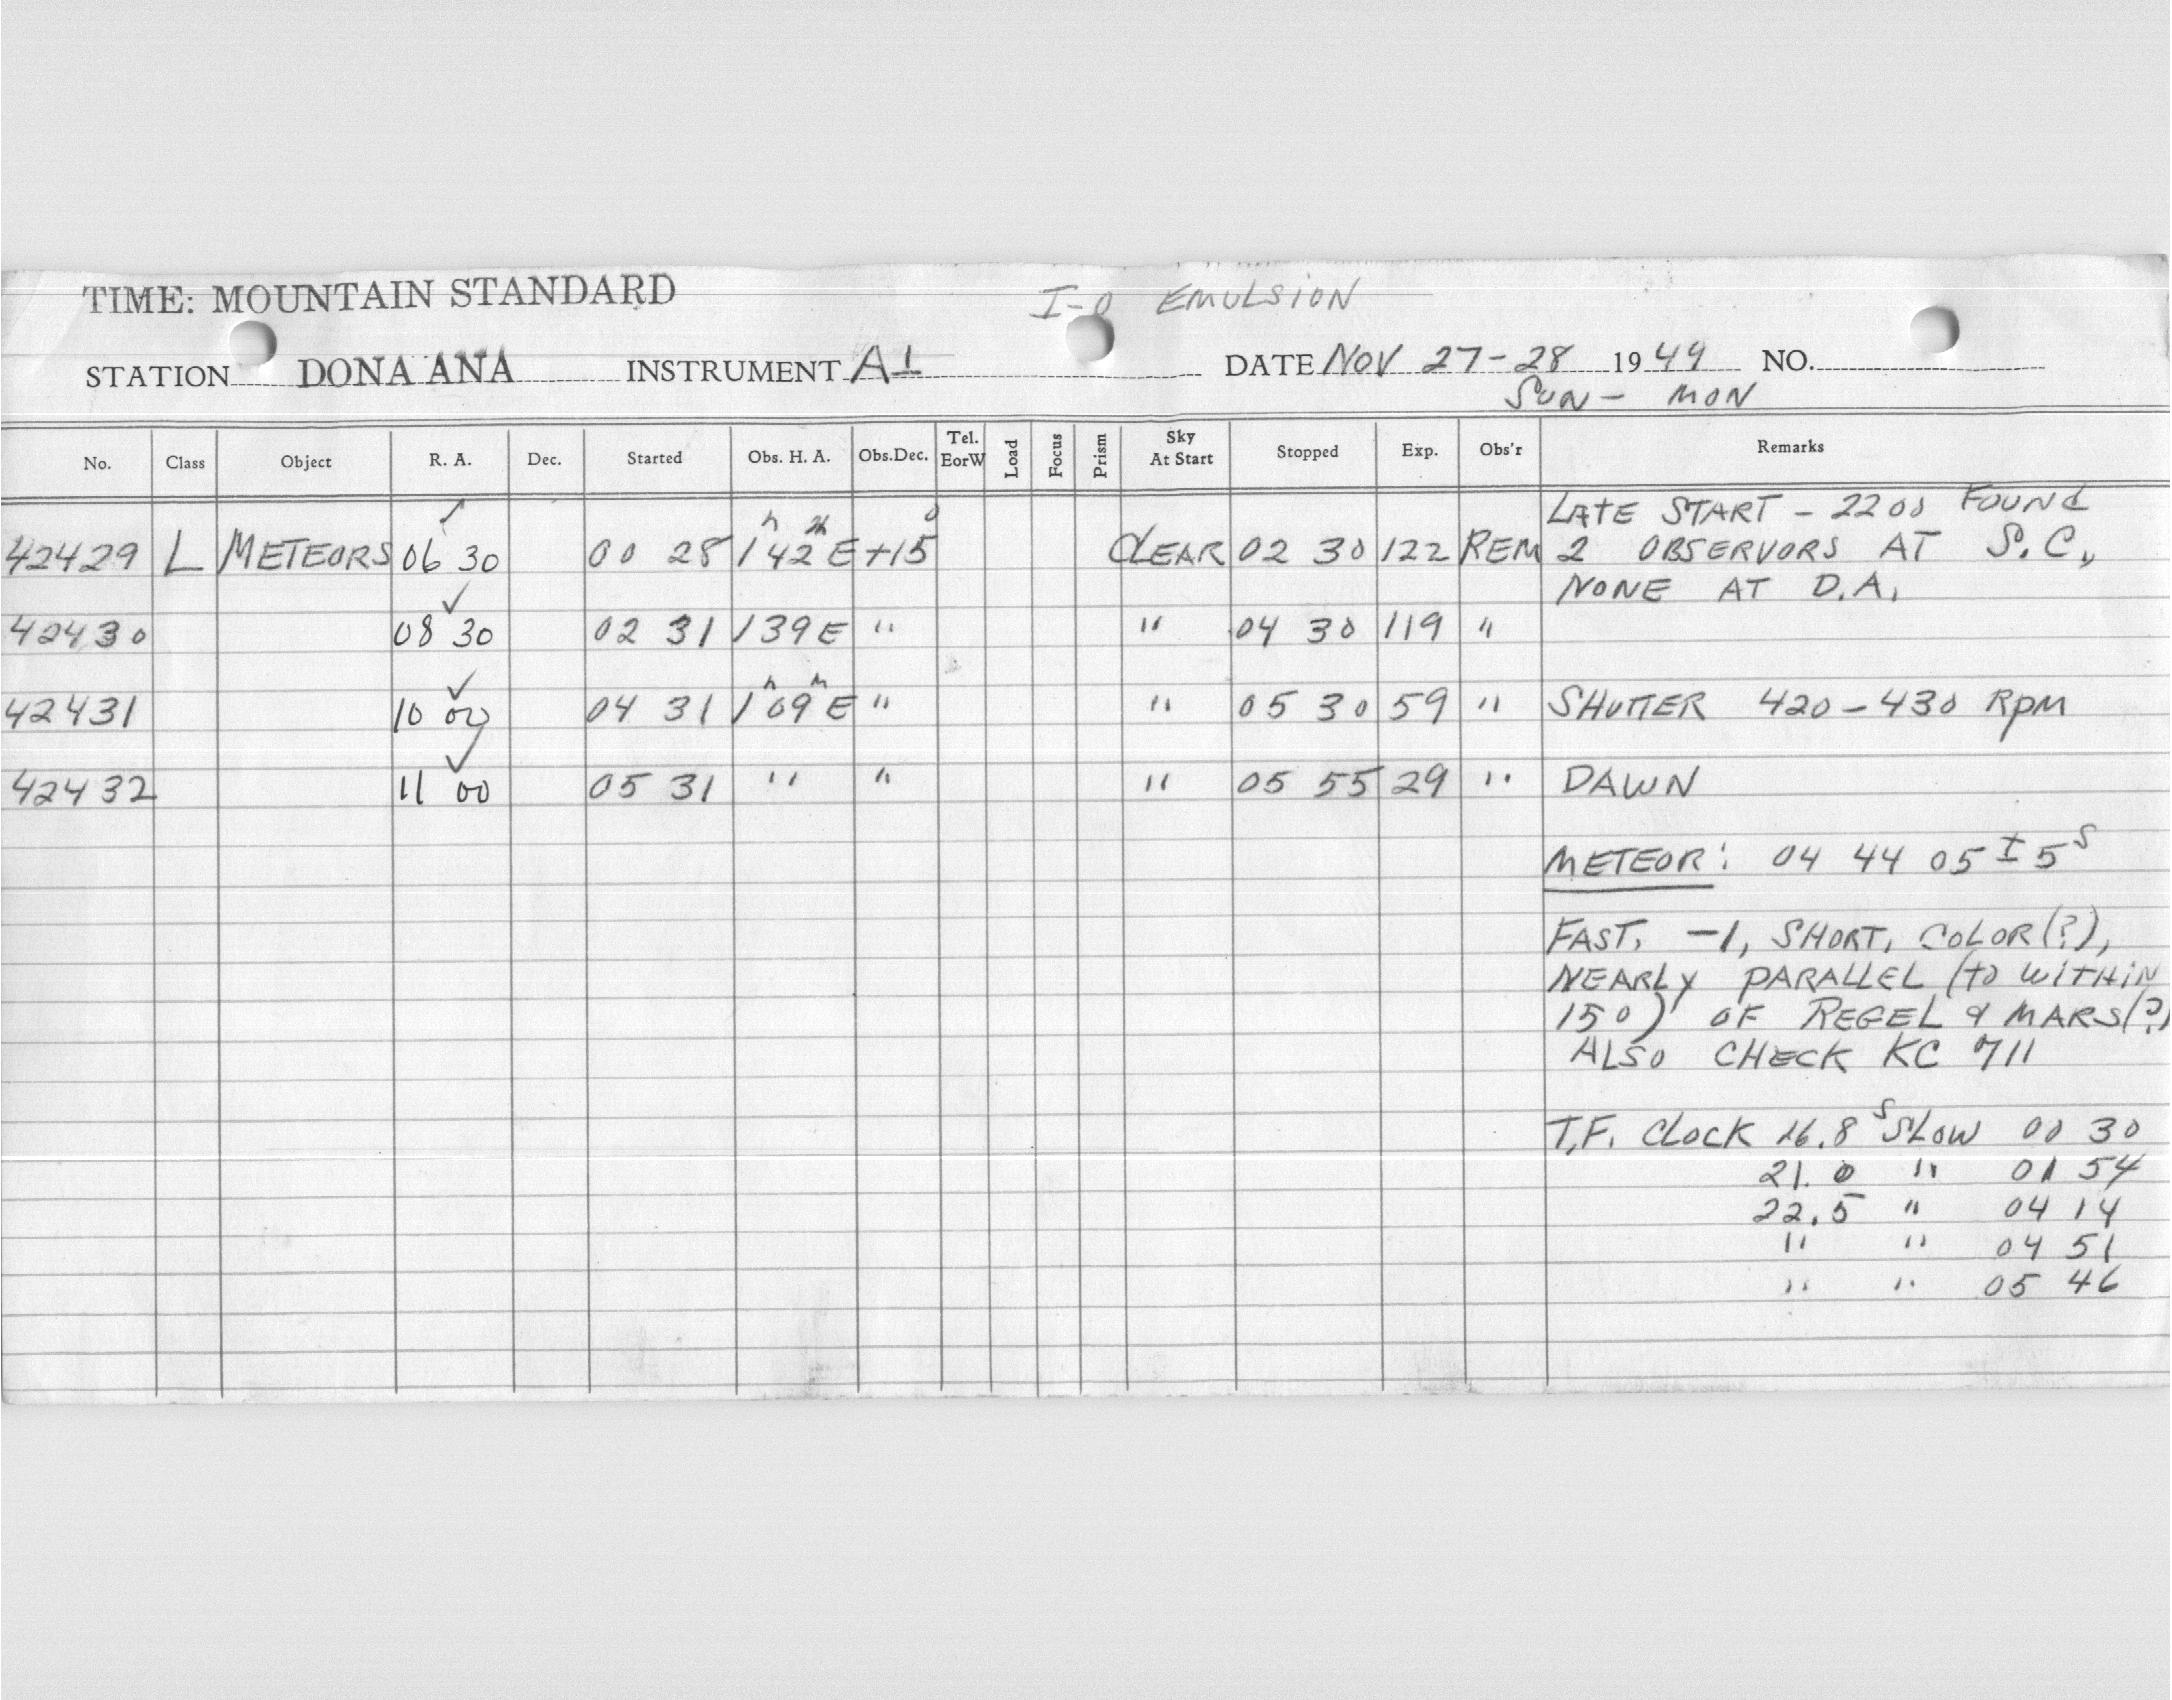 TIME: MOUNTAIN STANDARD I-O EMULSION
STATION DONA ANA INSTRUMENT A1 DATE NOV 27-28 1949 NO.
SUN- MON
No. Class Object R. A. Dec. Started Obs. H. A. Obs.Dec. Tel. EorW Load Focus Prism Sky At Start Stopped Exp. Obs'r Remarks
LATE START - 2200 FOUND
42429 L METEORS 06 30 ✓ 00 28 1h 42m E +15° CLEAR 02 30 122 REM 2 OBSERVORS AT S.C.,
NONE AT D.A.
42430 08 30 ✓ 02 31 1 39 E " " 04 30 119 "
42431 10 00 ✓ 04 31 1h 09m E " " 05 30 59 " SHUTTER 420-430 RPM
42432 11 00 ✓ 05 31 " " " 05 55 29 " DAWN
METEOR: 04 44 05 ± 5s
FAST, -1, SHORT, COLOR(?),
NEARLY PARALLEL (TO WITHIN
15°) OF REGEL & MARS(?)
ALSO CHECK KC 711
T.F. CLOCK 16.8s SLOW 00 30
21.0 " 01 54
22.5 " 04 14
" " 04 51
" " 05 46